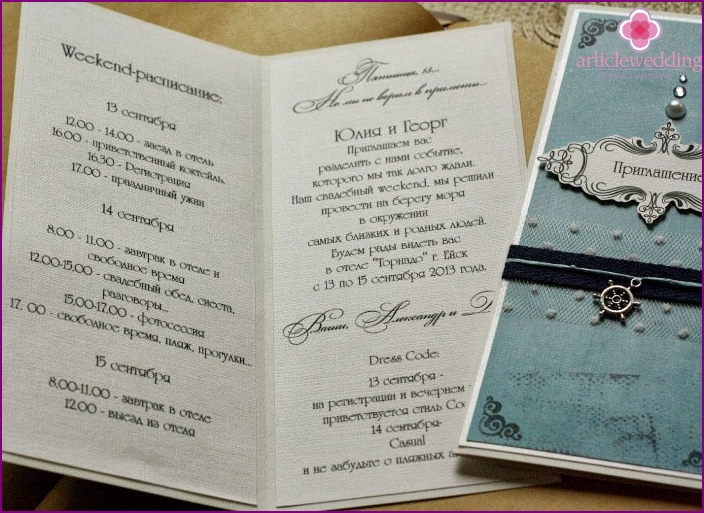 Weekend-расписание:
13 сентября
12.00 - 14.00 - заезд в отель
16.00 - приветственный коктейль,
16.30 - Регистрация
17.00 - праздничный ужин
14 сентября
8.00 - 11.00 - завтрак в отеле и
свободное время
12.00-15.00 - свадебный обед, сиеста,
разговоры...
15.00-17.00 - фотосессия
17. 00 - свободное время, пляж, прогулки...
15 сентября
8.00-11.00 - завтрак в отеле
12.00 - выезд из отеля
Пятница, 13...
Но мы не верим в приметы...
Юлия и Георг
Приглашаем вас
разделить с нами событие,
которого мы так долго ждали.
Наш свадебный weekend, мы решили
провести на берегу моря
в окружении
самых близких и родных людей.
Будем рады видеть вас
в отеле "Торнадо" г. Ейск
с 13 по 15 сентября 2013 года.
Ваши, Александр и
Dress Code:
13 сентября -
на регистрации и вечернем
приветствуется стиль
14 сентября-
Casual
и не забудьте о пляжных
articlewedding
Приглашение